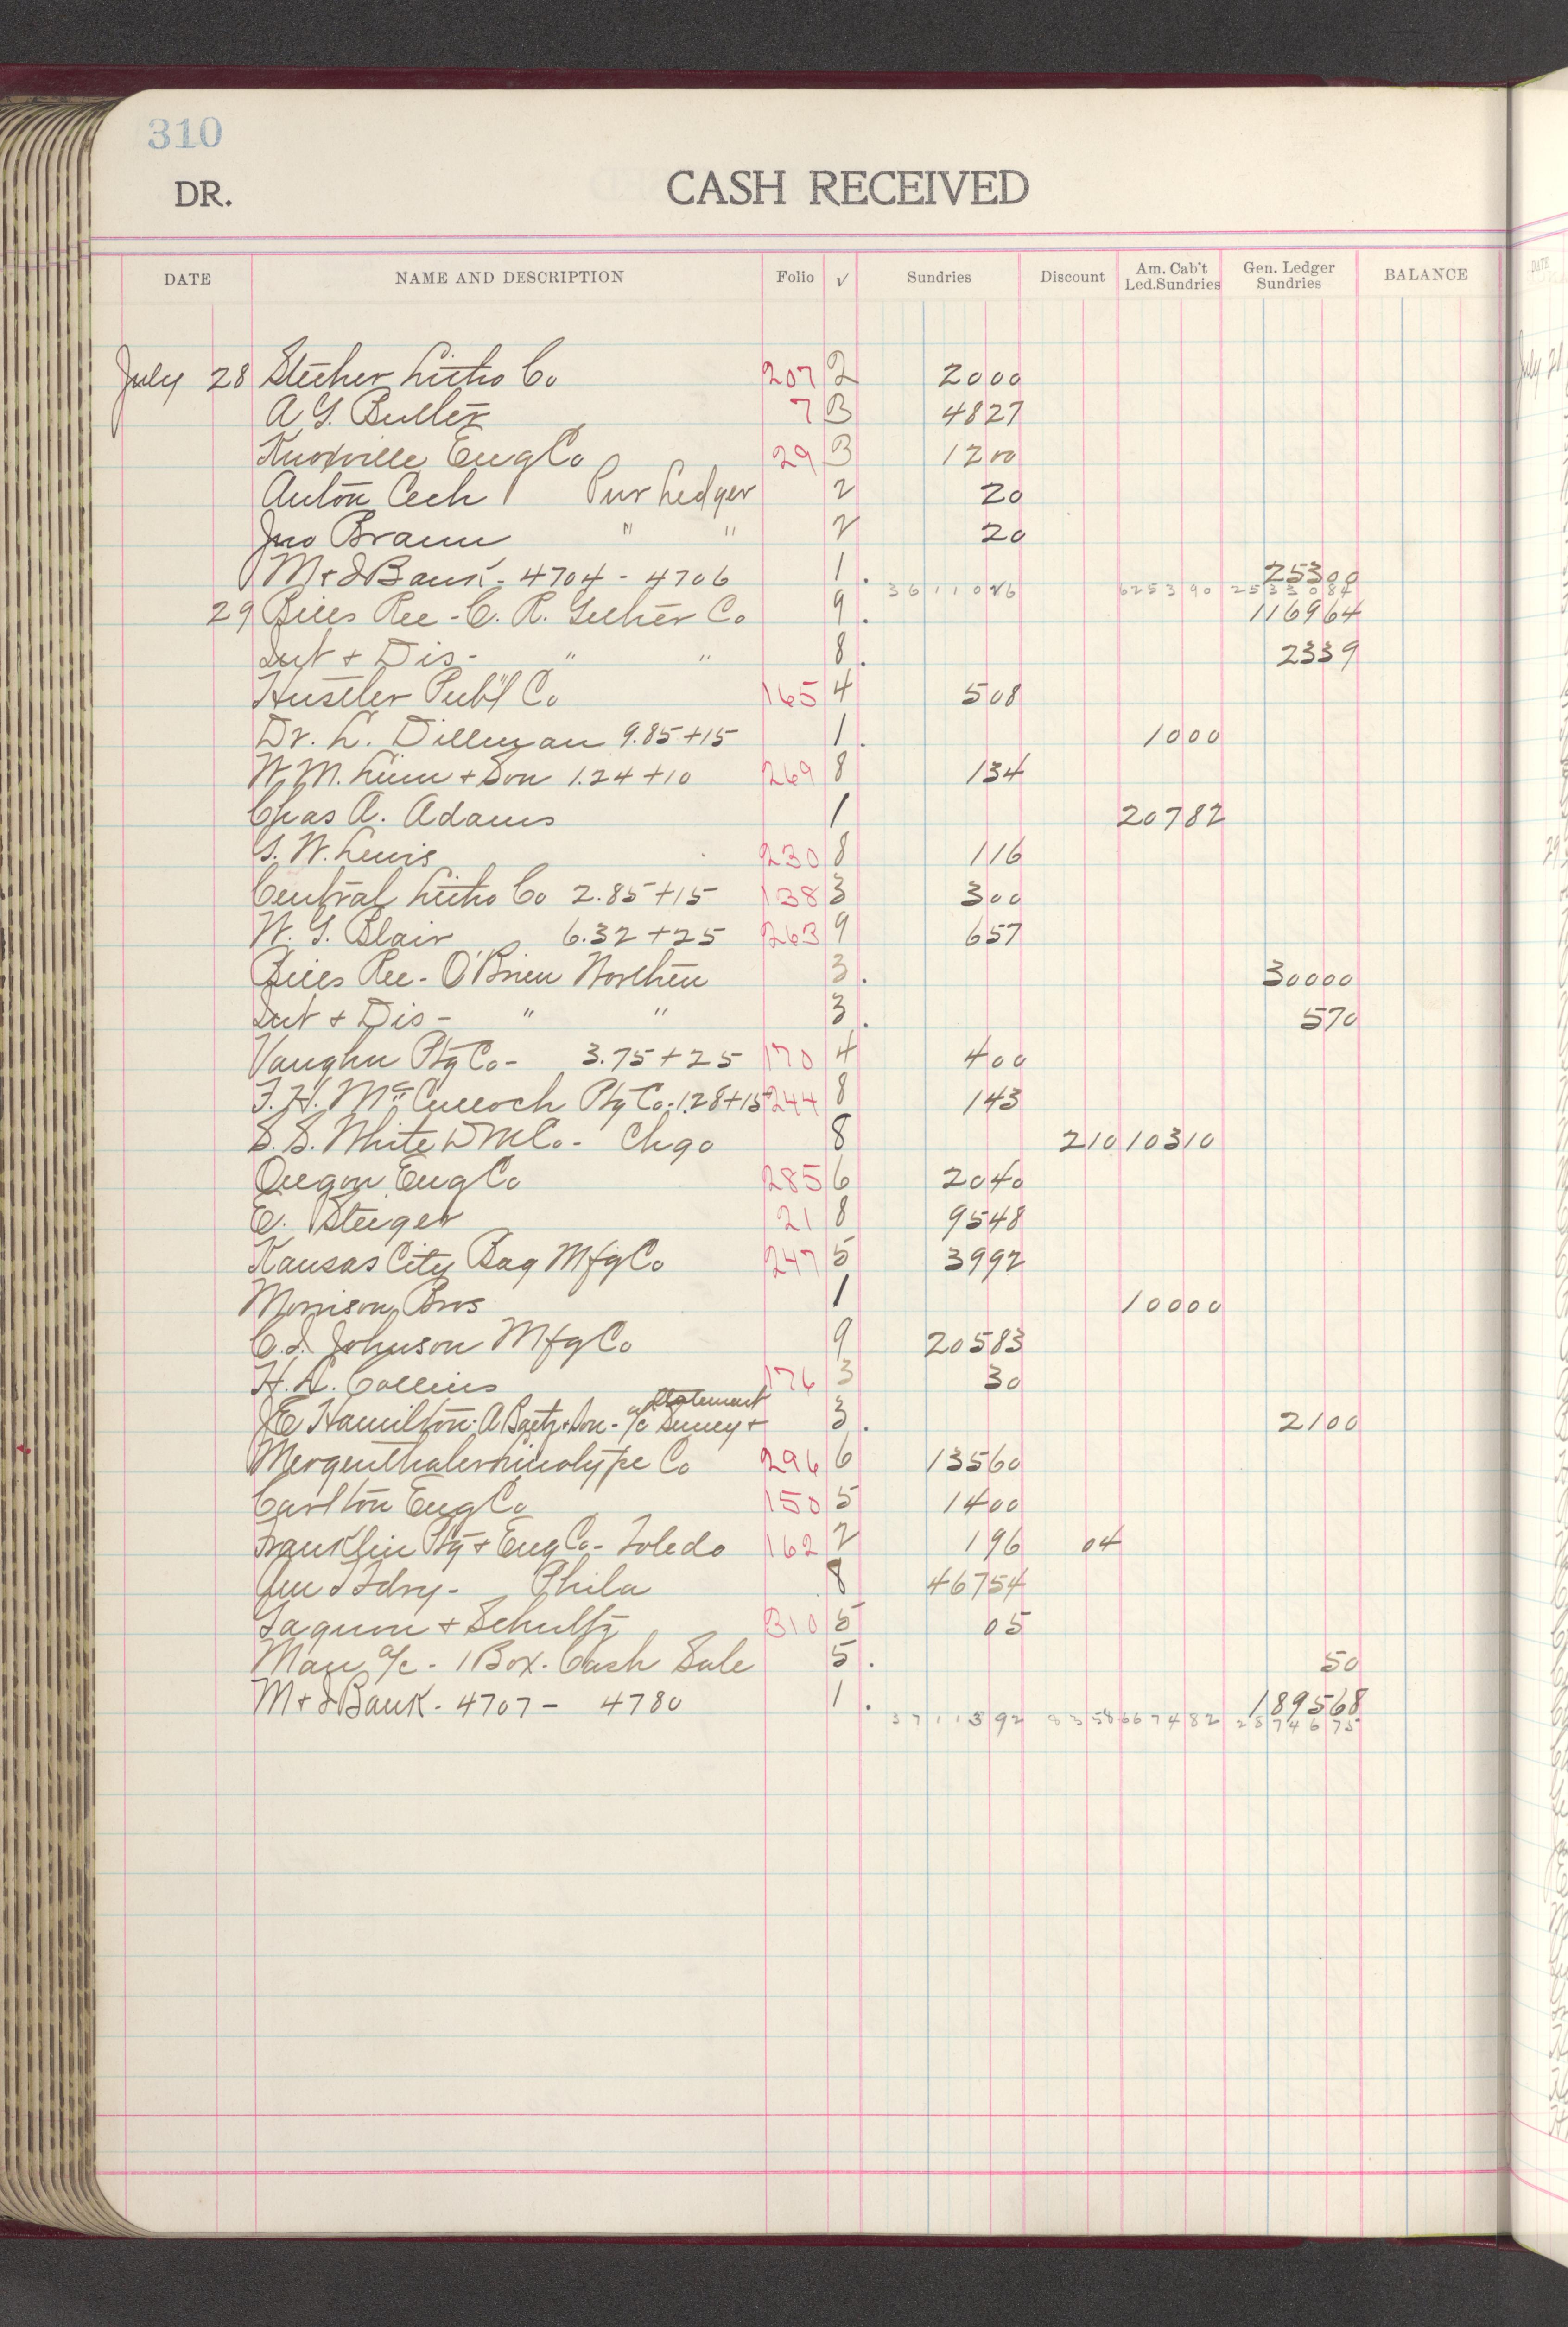 310
DR. CASH RECEIVED
DATE NAME AND DESCRIPTION Folio √ Sundries Discount Am. Cab't Led.Sundries Gen. Ledger Sundries BALANCE
July 28 Stecher Litho Co 207 2 2000
A G. Butler 7 B 4827
Knoxville Eng Co 29 3 1200
Anton Cech Pur Ledger 2 20
Jno Braun " " 2 20
M+I Bank - 4704 - 4706 1. 25300
3611086 625390 2533084
29 Bills Rec - C. R. Gether Co 9. 116964
Int + Dis - " " 8. 2339
Hustler Pub'l Co 165 4 508
Dr. L. Dillman 9.85+15 1. 1000
W. M. Linn + Son 1.24+10 269 8 134
Chas A. Adams 1 20782
S. W. Lewis 230 8 116
Central Litho Co 2.85+15 138 3 300
W. G. Blair 6.32+25 263 9 657
Bills Rec - O'Brien Worthen 3. 30000
Int + Dis - " " 3. 570
Vaughn Ptg Co - 3.75+25 170 4 400
F. H. McCulloch Ptg Co - 1.28+15 244 8 143
S. S. White D M Co - Chgo 8 210 10310
Oregon Eng Co 285 6 2040
E. Steiger 21 8 9548
Kansas City Bag Mfg Co 247 5 3992
Morrison Bros 1 10000
C. I. Johnson Mfg Co 9 20583
H. L. Collins 176 3 30
statement
J E Hamilton - A Baetz + Son - a/c + 3. 2100
Mergenthaler Linotype Co 296 6 13560
Carlton Eng Co 150 5 1400
Franklin Ptg + Eng Co - Toledo 162 2 196 04
Am T Fdry - Phila 8 46754
Gagnon + Schultz 310 5 05
Man a/c - 1 Box - Cash Sale 5. 50
M+I Bank - 4707 - 4780 1. 189568
3711392 3358 667482 2874675